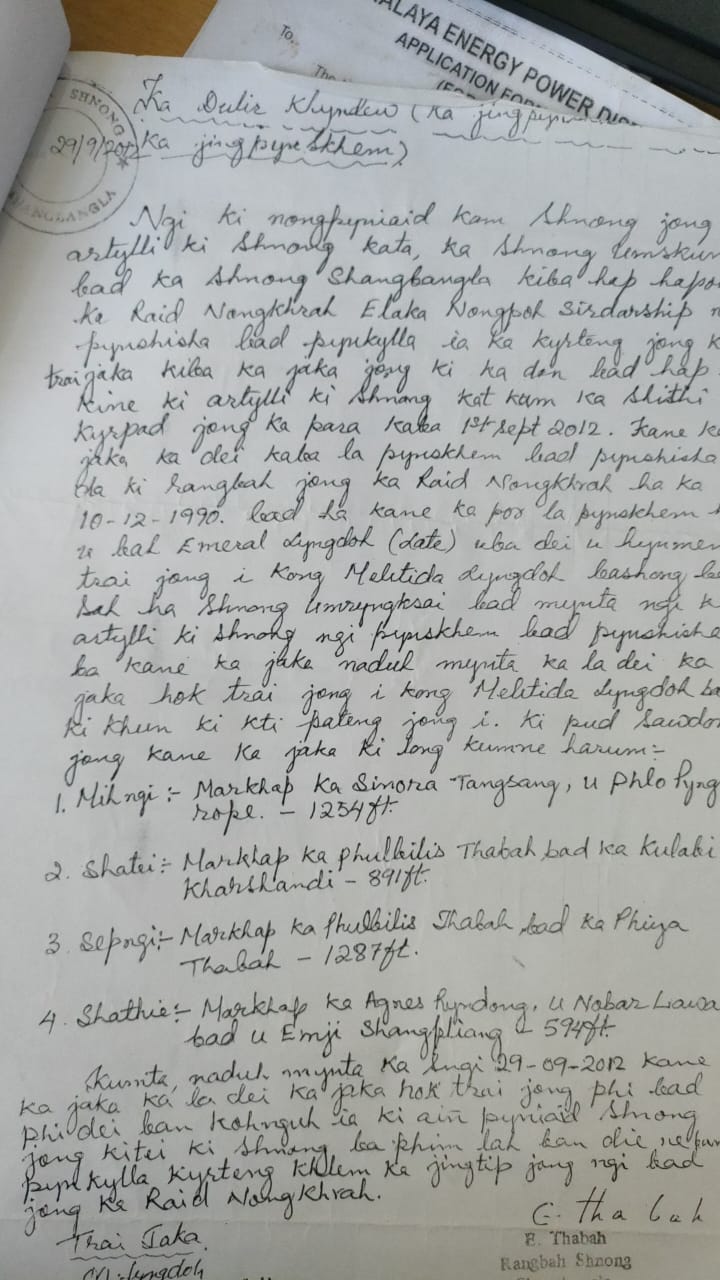 ALAYA ENERGY POWER DIS
APPLICATION FOR
To,
The
SHNONG
29/9/2012
Ka Dulir Khyndew (Ka jingpyn
Ka jingpynskhem)
Ngi ki nongpyniaid kam Shnong jong
artylli ki Shnong kata, ka Shnong Umskur
bad ka Shnong Shangbangla kiba hap hapo
ka Raid Nongkhrah Elaka Nongpoh Sirdarship
pynshisha bad pynkylla ia ka kyrteng jong k
trai jaka kiba ka jaka jong ki ka don bad hap
kine ki artylli ki Shnong kat kum ka Shithi
Kyrpad jong ka para kaba 1st Sept 2012. Kane k
jaka ka dei kaba la pynskhem bad pynshisha
da ki rangbah jong ka Raid Nongkhrah ha ka
10-12-1990. bad ha kane ka por la pynskhem
u bah Emeral Lyngdoh (Late) uba dei u hynmen
trai jong i Kong Melitida Lyngdoh bashong ba
sah ha Shnong Umryngksai bad mynta ngi k
artylli ki Shnong ngi pynskhem bad pynshisha
ba kane ka jaka naduh mynta ka la dei ka
jaka hok trai jong i kong Melitida Lyngdoh ba
ki khun ki kti pateng jong i. Ki pud Sawdo
jong kane ka jaka ki long kumne harum:-
1. Mihngi:- Markhap ka Sinora Tangsang, u Phlo Pyng
rope. - 1254ft.
2. Shatei:- Markhap ka Phulbilis Thabah bad ka Kulabi
Kharshandi - 891ft.
3. Sepngi:- Markhap ka Phulbilis Thabah bad ka Phiya
Thabah - 1287ft.
4. Shathie:- Markhap ka Agnes Ryndong, u Nobar Lawa
bad u Emji Shangpliang - 594ft.
Kumta, naduh mynta ka sngi 29-09-2012 kane
ka jaka ka la dei ka jaka hok trai jong phi bad
phi dei ban kohnguh ia ki ain pyniaid Shnong
jong kitei ki Shnong ba phim lah ban die ne
pynkylla kyrteng khlem ka jingtip jong ngi bad
jong ka Raid Nongkhrah.
Trai Jaka
E. Thabah
E. Thabah
Rangbah Shnong